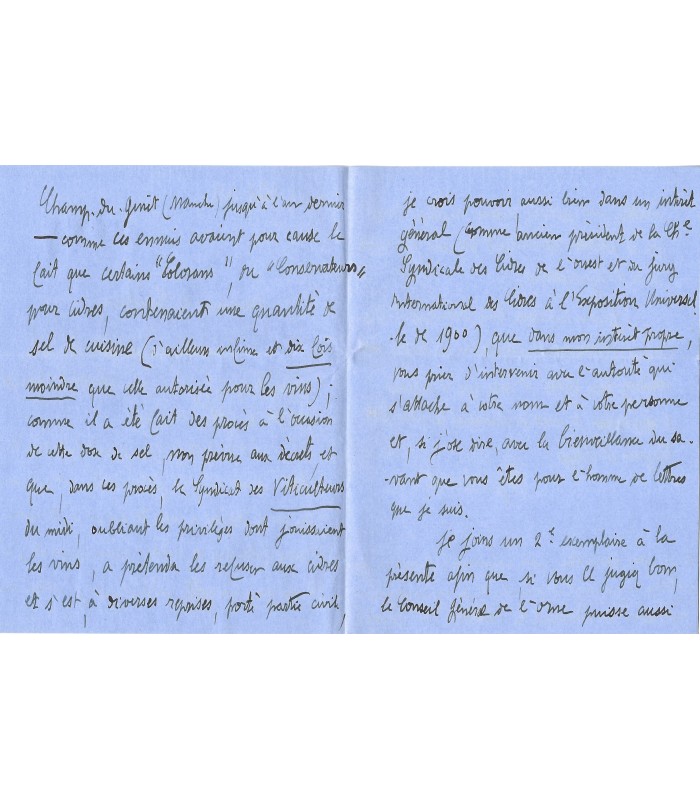 Champ-du-Genêt (Manche) jusqu'à l'an dernier
— comme ces ennuis avaient pour cause le
fait que certains "Colorans", ou "Conservateurs"
pour cidres, contenaient une quantité de
sel de cuisine (d'ailleurs infime et dix fois
moindre que celle autorisée pour les vins) ;
comme il a été fait des procès à l'occasion
de cette dose de sel, non prévue aux décrets, et
que, dans ces procès, le Syndicat des Viticulteurs
du midi, oubliant les privilèges dont jouissaient
les vins, a prétendu les refuser aux cidres
et s'est, à diverses reprises, porté partie civile,
je crois pouvoir aussi bien dans un intérêt
général (comme ancien président de la Ch^e
Syndicale des Cidres de l'ouest et du Jury
International des Cidres à l'Exposition Univers el
-le de 1900), que dans mon intérêt propre,
vous prier d'intervenir avec l'autorité qui
s'attache à votre nom et à votre personne
et, si j'ose dire, avec la bienveillance du sa-
-vant que vous êtes pour l'homme de lettres
que je suis.
Je joins un 2^e exemplaire à la
présente afin que, si vous le jugiez bon,
le Conseil Général de l'Orne puisse aussi